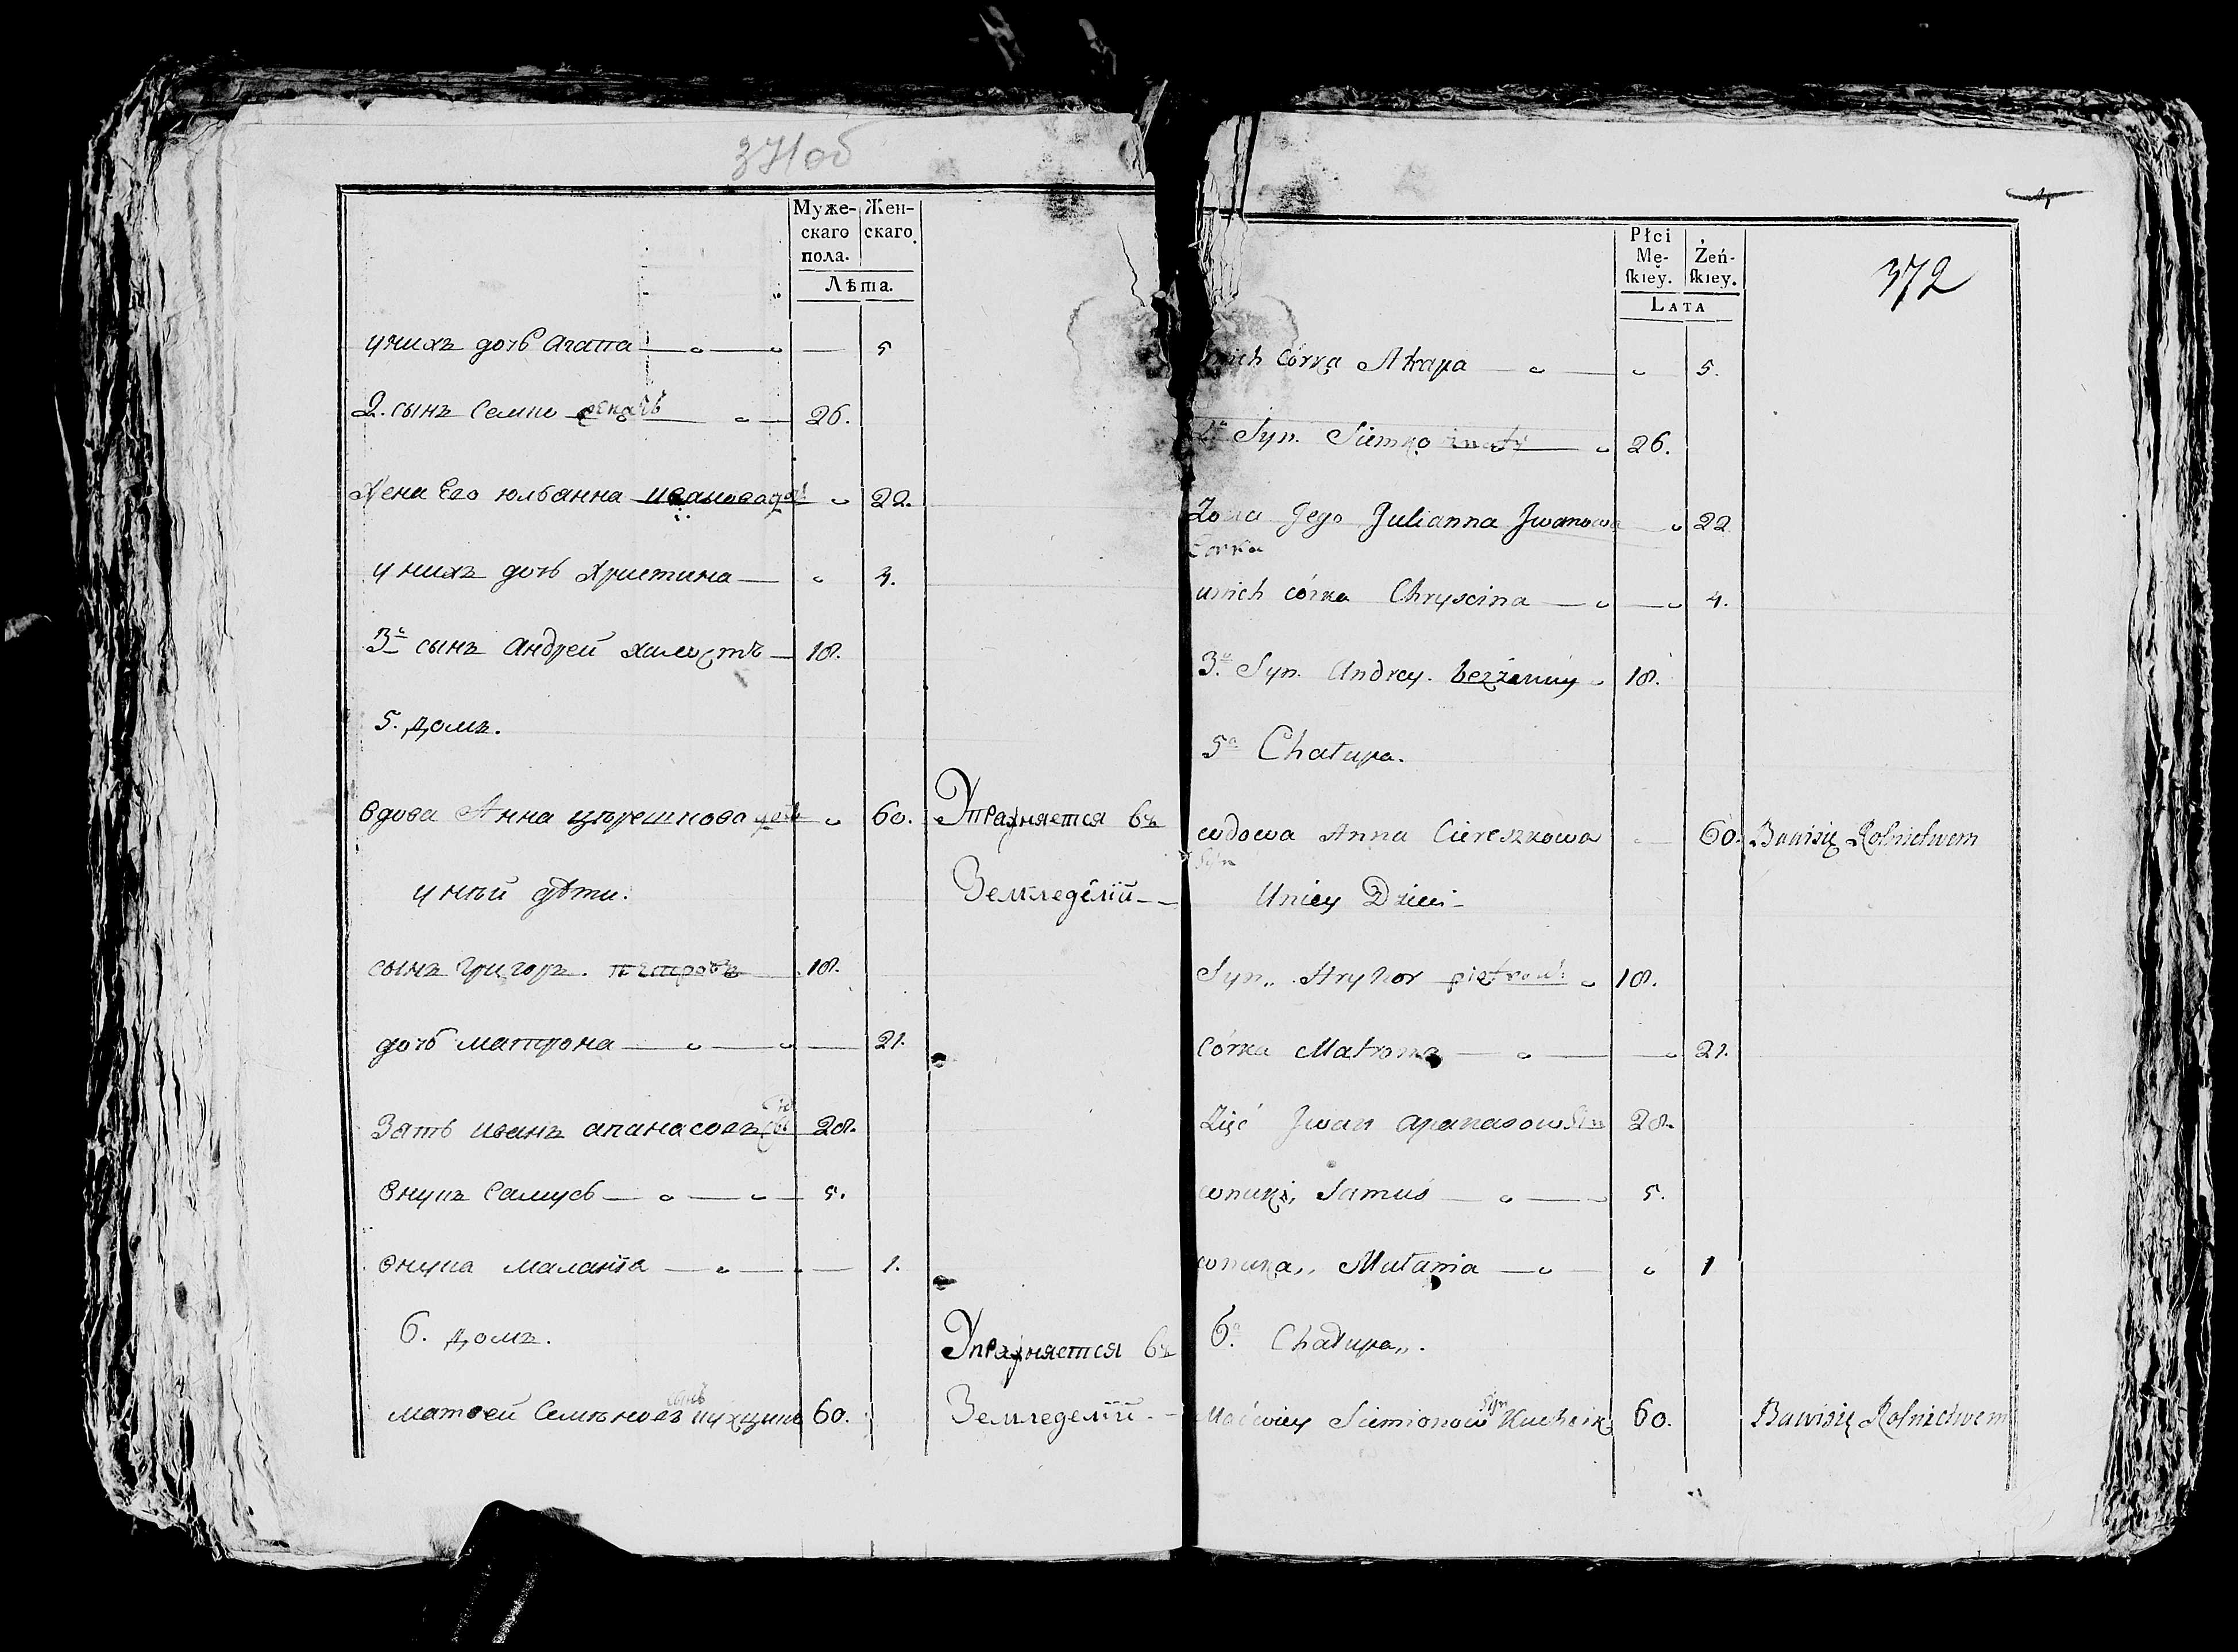 371об
Муже- Жен-
скаго скаго
пола.
Лѣта.
унихъ дочь Агапа 5
2. сынъ Семко 26.
Жена Его юльанна иванова дочь 22.
унихъ дочь Христина 4.
3й сынъ андрей халостъ 18.
5. домъ.
вдова Анна цѣрешкова 60. Упражняется въ
унѣй дѣти. Земледелїи
сынъ григоръ. петровъ 18.
дочь матрона 21.
Зять иванъ апанасовъ 28.
внукъ Самусь 5.
внука маланїа 1.
6. домъ.
Упражняется въ
матвей Семѣновъ сынъ 60. Земледелїи
372
Płci
Mę- Żeń-
skiey. skiey.
LATA
unich córka Ahapa 5.
2. Syn. Siemko 26.
Żona Jego Julianna Iwanowa 22
Corka
unich córka Chryscina 4.
3. Syn. Andrey. bezżenny 18.
5a Chałupa.
wdowa Anna Ciereszkowa 60. Bawisię Rolnictwem
Uniey Dzieci
Syn,, Hryhor pietrow 18.
Córka Matrona 21.
Zięć Jwan apanasow Syn 28.
wnuk,, Samuś 5.
wnuka,, Małania 1
6.a Chałupa,,.
Maćwiey Siemionow Syn 60. Bawisię Rolnictwem